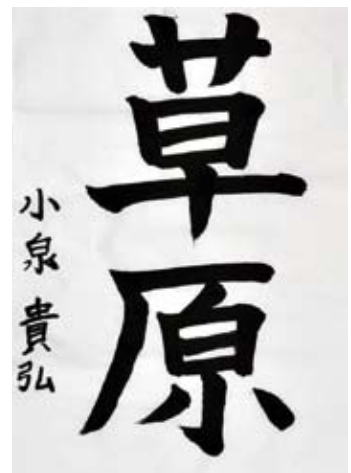 草原
小泉 貴弘